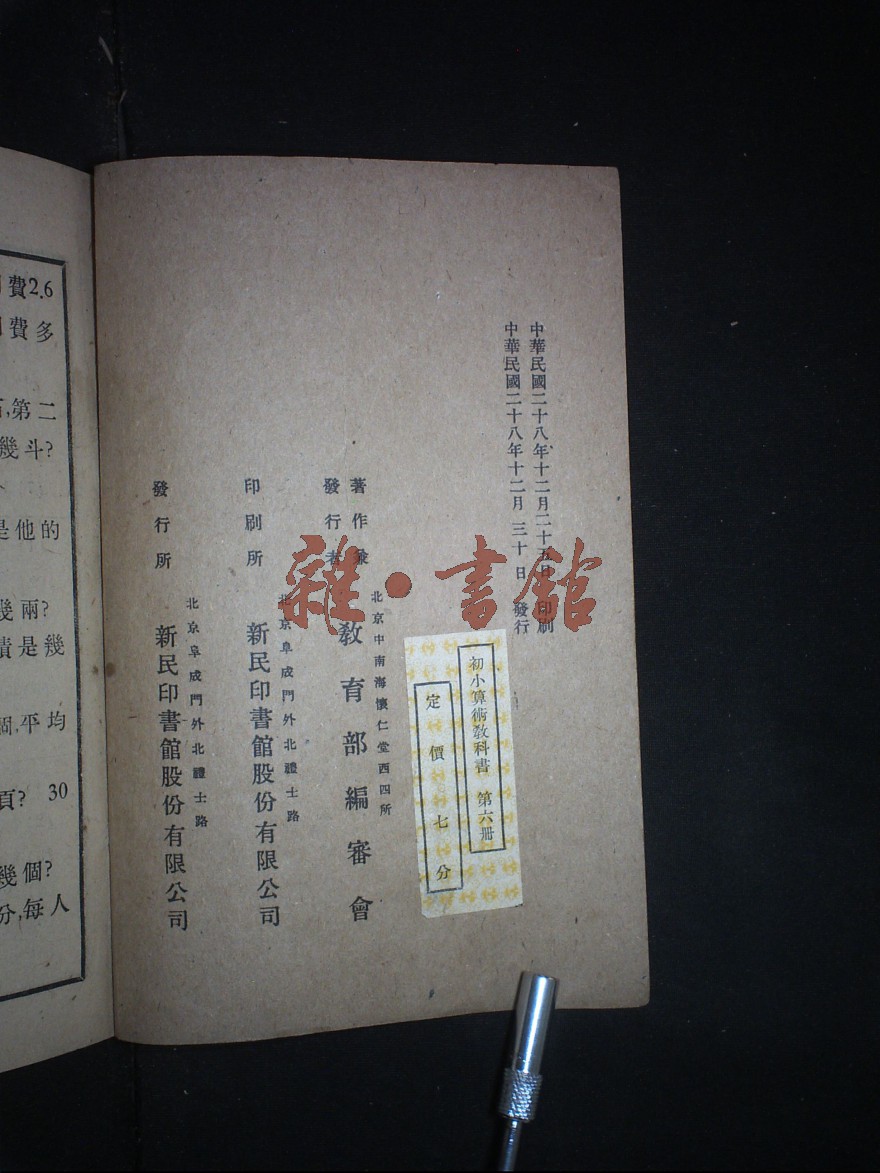 中華民國二十八年十二月二十五日 印刷
中華民國二十八年十二月 三十 日 發行
初小算術教科書 第六册
定價七分
著作兼
發行者
北京中南海懷仁堂西四所
教育部編審會
印刷所
北京阜成門外北禮士路
新民印書館股份有限公司
發行所
北京阜成門外北禮士路
新民印書館股份有限公司
雜·書館
費2.6
費多
第二
幾斗?
是他的
幾兩?
積是幾
個,平均
頁? 30
幾個?
分,每人